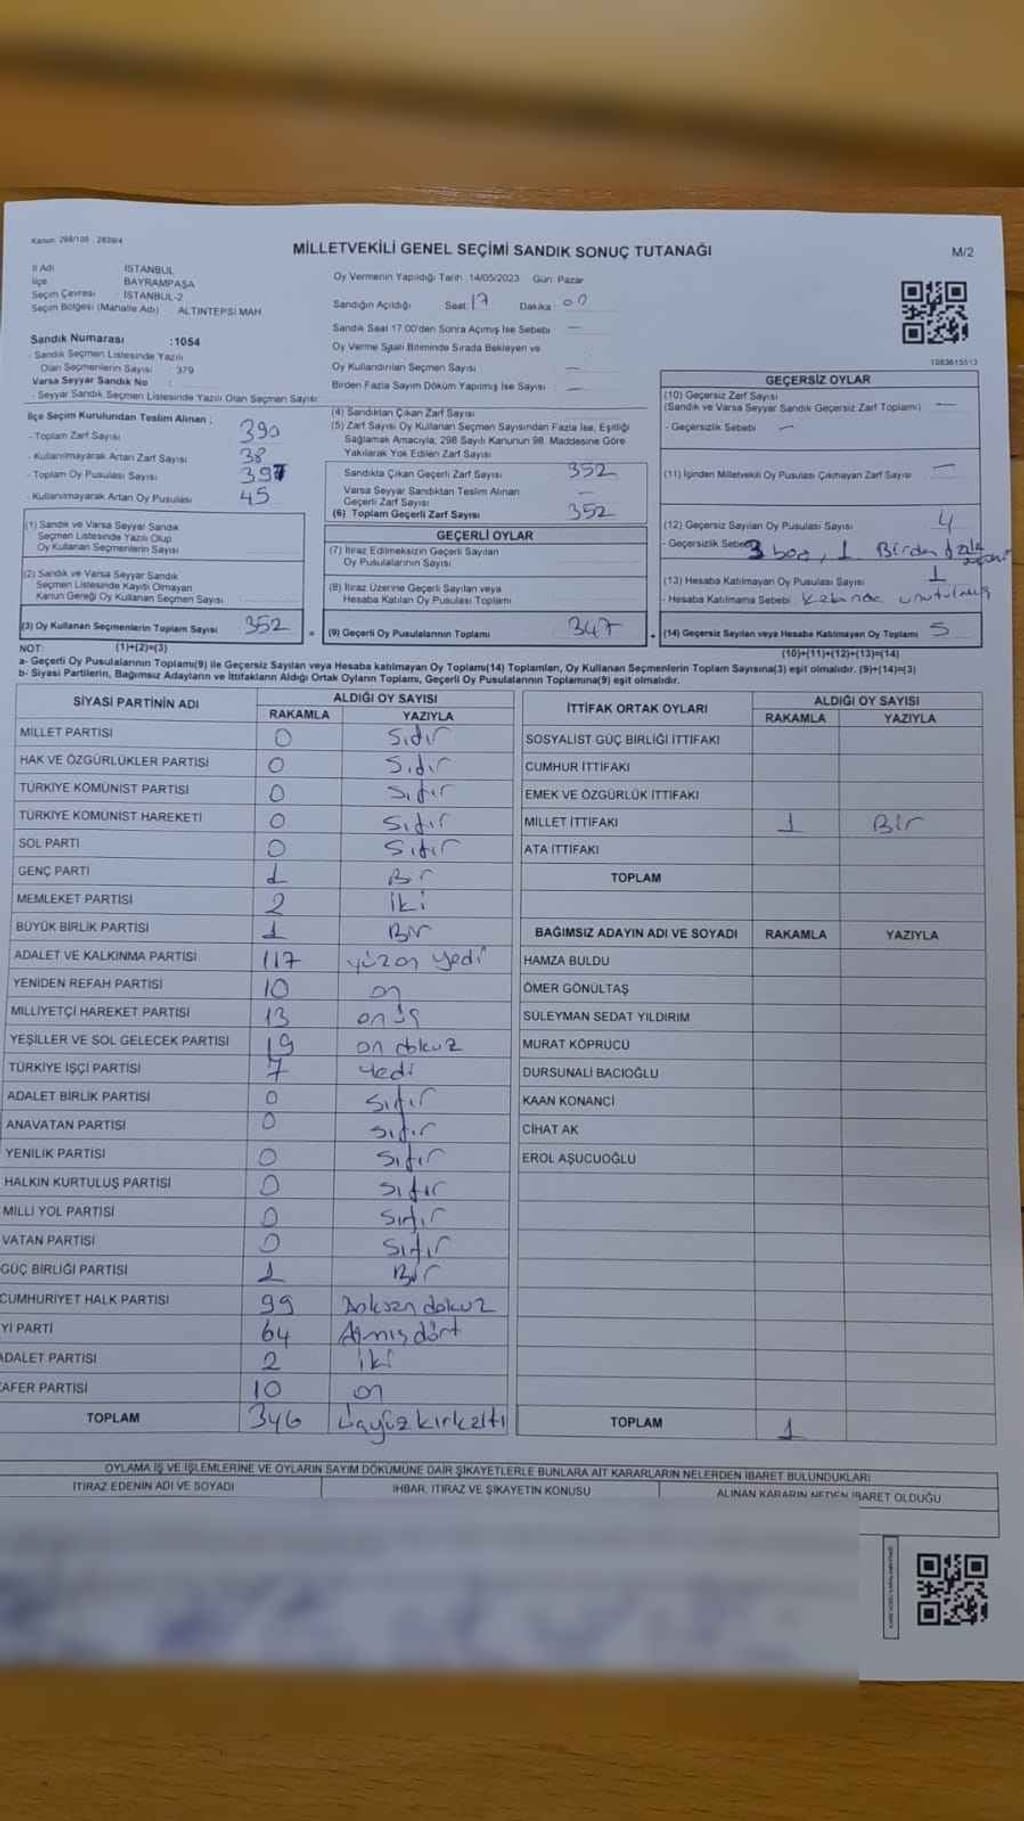 Kanun: 298/105 , 2839/4
MİLLETVEKİLİ GENEL SEÇİMİ SANDIK SONUÇ TUTANAĞI
M/2
İl Adı İSTANBUL
İlçe BAYRAMPAŞA
Seçim Çevresi İSTANBUL-2
Seçim Bölgesi (Mahalle Adı) ALTINTEPSİ MAH
Oy Vermenin Yapıldığı Tarih :14/05/2023 Gün: Pazar
Sandığın Açıldığı Saat: 17 Dakika: 00
Sandık Saat 17.00'den Sonra Açılmış İse Sebebi —
Oy Verme Saati Bitiminde Sırada Bekleyen ve
Oy Kullandırılan Seçmen Sayısı —
Birden Fazla Sayım Döküm Yapılmış İse Sayısı —
Sandık Numarası :1054
- Sandık Seçmen Listesinde Yazılı
Olan Seçmenlerin Sayısı : 379
Varsa Seyyar Sandık No :
- Seyyar Sandık Seçmen Listesinde Yazılı Olan Seçmen Sayısı:
İlçe Seçim Kurulundan Teslim Alınan ;
- Toplam Zarf Sayısı 390
- Kullanılmayarak Artan Zarf Sayısı 38
- Toplam Oy Pusulası Sayısı 397
- Kullanılmayarak Artan Oy Pusulası 45
(1) Sandık ve Varsa Seyyar Sandık
Seçmen Listesinde Yazılı Olup
Oy Kullanan Seçmenlerin Sayısı
(2) Sandık ve Varsa Seyyar Sandık
Seçmen Listesinde Kaydı Olmayan
Kanun Gereği Oy Kullanan Seçmen Sayısı
(3) Oy Kullanan Seçmenlerin Toplam Sayısı 352
(1)+(2)=(3)
(4) Sandıktan Çıkan Zarf Sayısı
(5) Zarf Sayısı Oy Kullanan Seçmen Sayısından Fazla İse, Eşitliği
Sağlamak Amacıyla, 298 Sayılı Kanunun 98. Maddesine Göre
Yakılarak Yok Edilen Zarf Sayısı
Sandıkta Çıkan Geçerli Zarf Sayısı 352
Varsa Seyyar Sandıktan Teslim Alınan
Geçerli Zarf Sayısı —
(6) Toplam Geçerli Zarf Sayısı 352
GEÇERLİ OYLAR
(7) İtiraz Edilmeksizin Geçerli Sayılan
Oy Pusulalarının Sayısı
(8) İtiraz Üzerine Geçerli Sayılan veya
Hesaba Katılan Oy Pusulası Toplamı
(9) Geçerli Oy Pusulalarının Toplamı 347
1083615513
GEÇERSİZ OYLAR
(10) Geçersiz Zarf Sayısı
(Sandık ve Varsa Seyyar Sandık Geçersiz Zarf Toplamı) —
- Geçersizlik Sebebi —
(11) İçinden Milletvekili Oy Pusulası Çıkmayan Zarf Sayısı —
(12) Geçersiz Sayılan Oy Pusulası Sayısı 4
- Geçersizlik Sebebi 3 boş, 1 Birden fazla
(13) Hesaba Katılmayan Oy Pusulası Sayısı 1
- Hesaba Katılmama Sebebi Kabinde unutulmuş
(14) Geçersiz Sayılan veya Hesaba Katılmayan Oy Toplamı 5
(10)+(11)+(12)+(13)=(14)
NOT:
a- Geçerli Oy Pusulalarının Toplamı(9) ile Geçersiz Sayılan veya Hesaba katılmayan Oy Toplamı(14) Toplamları, Oy Kullanan Seçmenlerin Toplam Sayısına(3) eşit olmalıdır. (9)+(14)=(3)
b- Siyasi Partilerin, Bağımsız Adayların ve İttifakların Aldığı Ortak Oyların Toplamı, Geçerli Oy Pusulalarının Toplamına(9) eşit olmalıdır.
SİYASİ PARTİNİN ADI ALDIĞI OY SAYISI
RAKAMLA YAZIYLA
MİLLET PARTİSİ 0 Sıfır
HAK VE ÖZGÜRLÜKLER PARTİSİ 0 Sıfır
TÜRKİYE KOMÜNİST PARTİSİ 0 Sıfır
TÜRKİYE KOMÜNİST HAREKETİ 0 Sıfır
SOL PARTİ 0 Sıfır
GENÇ PARTİ 1 Bir
MEMLEKET PARTİSİ 2 İki
BÜYÜK BİRLİK PARTİSİ 1 Bir
ADALET VE KALKINMA PARTİSİ 117 yüzon yedi
YENİDEN REFAH PARTİSİ 10 on
MİLLİYETÇİ HAREKET PARTİSİ 13 on üç
YEŞİLLER VE SOL GELECEK PARTİSİ 19 on dokuz
TÜRKİYE İŞÇİ PARTİSİ 7 Yedi
ADALET BİRLİK PARTİSİ 0 Sıfır
ANAVATAN PARTİSİ 0 Sıfır
YENİLİK PARTİSİ 0 Sıfır
HALKIN KURTULUŞ PARTİSİ 0 Sıfır
MİLLİ YOL PARTİSİ 0 Sıfır
VATAN PARTİSİ 0 Sıfır
GÜÇ BİRLİĞİ PARTİSİ 1 Bir
CUMHURİYET HALK PARTİSİ 99 Doksan dokuz
Yİ PARTİ 64 Atmış dört
ADALET PARTİSİ 2 iki
AFER PARTİSİ 10 on
TOPLAM 346 Üçyüz kırkaltı
İTTİFAK ORTAK OYLARI ALDIĞI OY SAYISI
RAKAMLA YAZIYLA
SOSYALİST GÜÇ BİRLİĞİ İTTİFAKI
CUMHUR İTTİFAKI
EMEK VE ÖZGÜRLÜK İTTİFAKI
MİLLET İTTİFAKI 1 Bir
ATA İTTİFAKI
TOPLAM
BAĞIMSIZ ADAYIN ADI VE SOYADI RAKAMLA YAZIYLA
HAMZA BULDU
ÖMER GÖNÜLTAŞ
SÜLEYMAN SEDAT YILDIRIM
MURAT KÖPRÜCÜ
DURSUNALİ BACIOĞLU
KAAN KONANCİ
CİHAT AK
EROL AŞUCUOĞLU
TOPLAM 1
OYLAMA İŞ VE İŞLEMLERİNE VE OYLARIN SAYIM DÖKÜMÜNE DAİR ŞİKAYETLERLE BUNLARA AİT KARARLARIN NELERDEN İBARET BULUNDUKLARI
İTİRAZ EDENİN ADI VE SOYADI İHBAR, İTİRAZ VE ŞİKAYETİN KONUSU ALINAN KARARIN NEDEN İBARET OLDUĞU